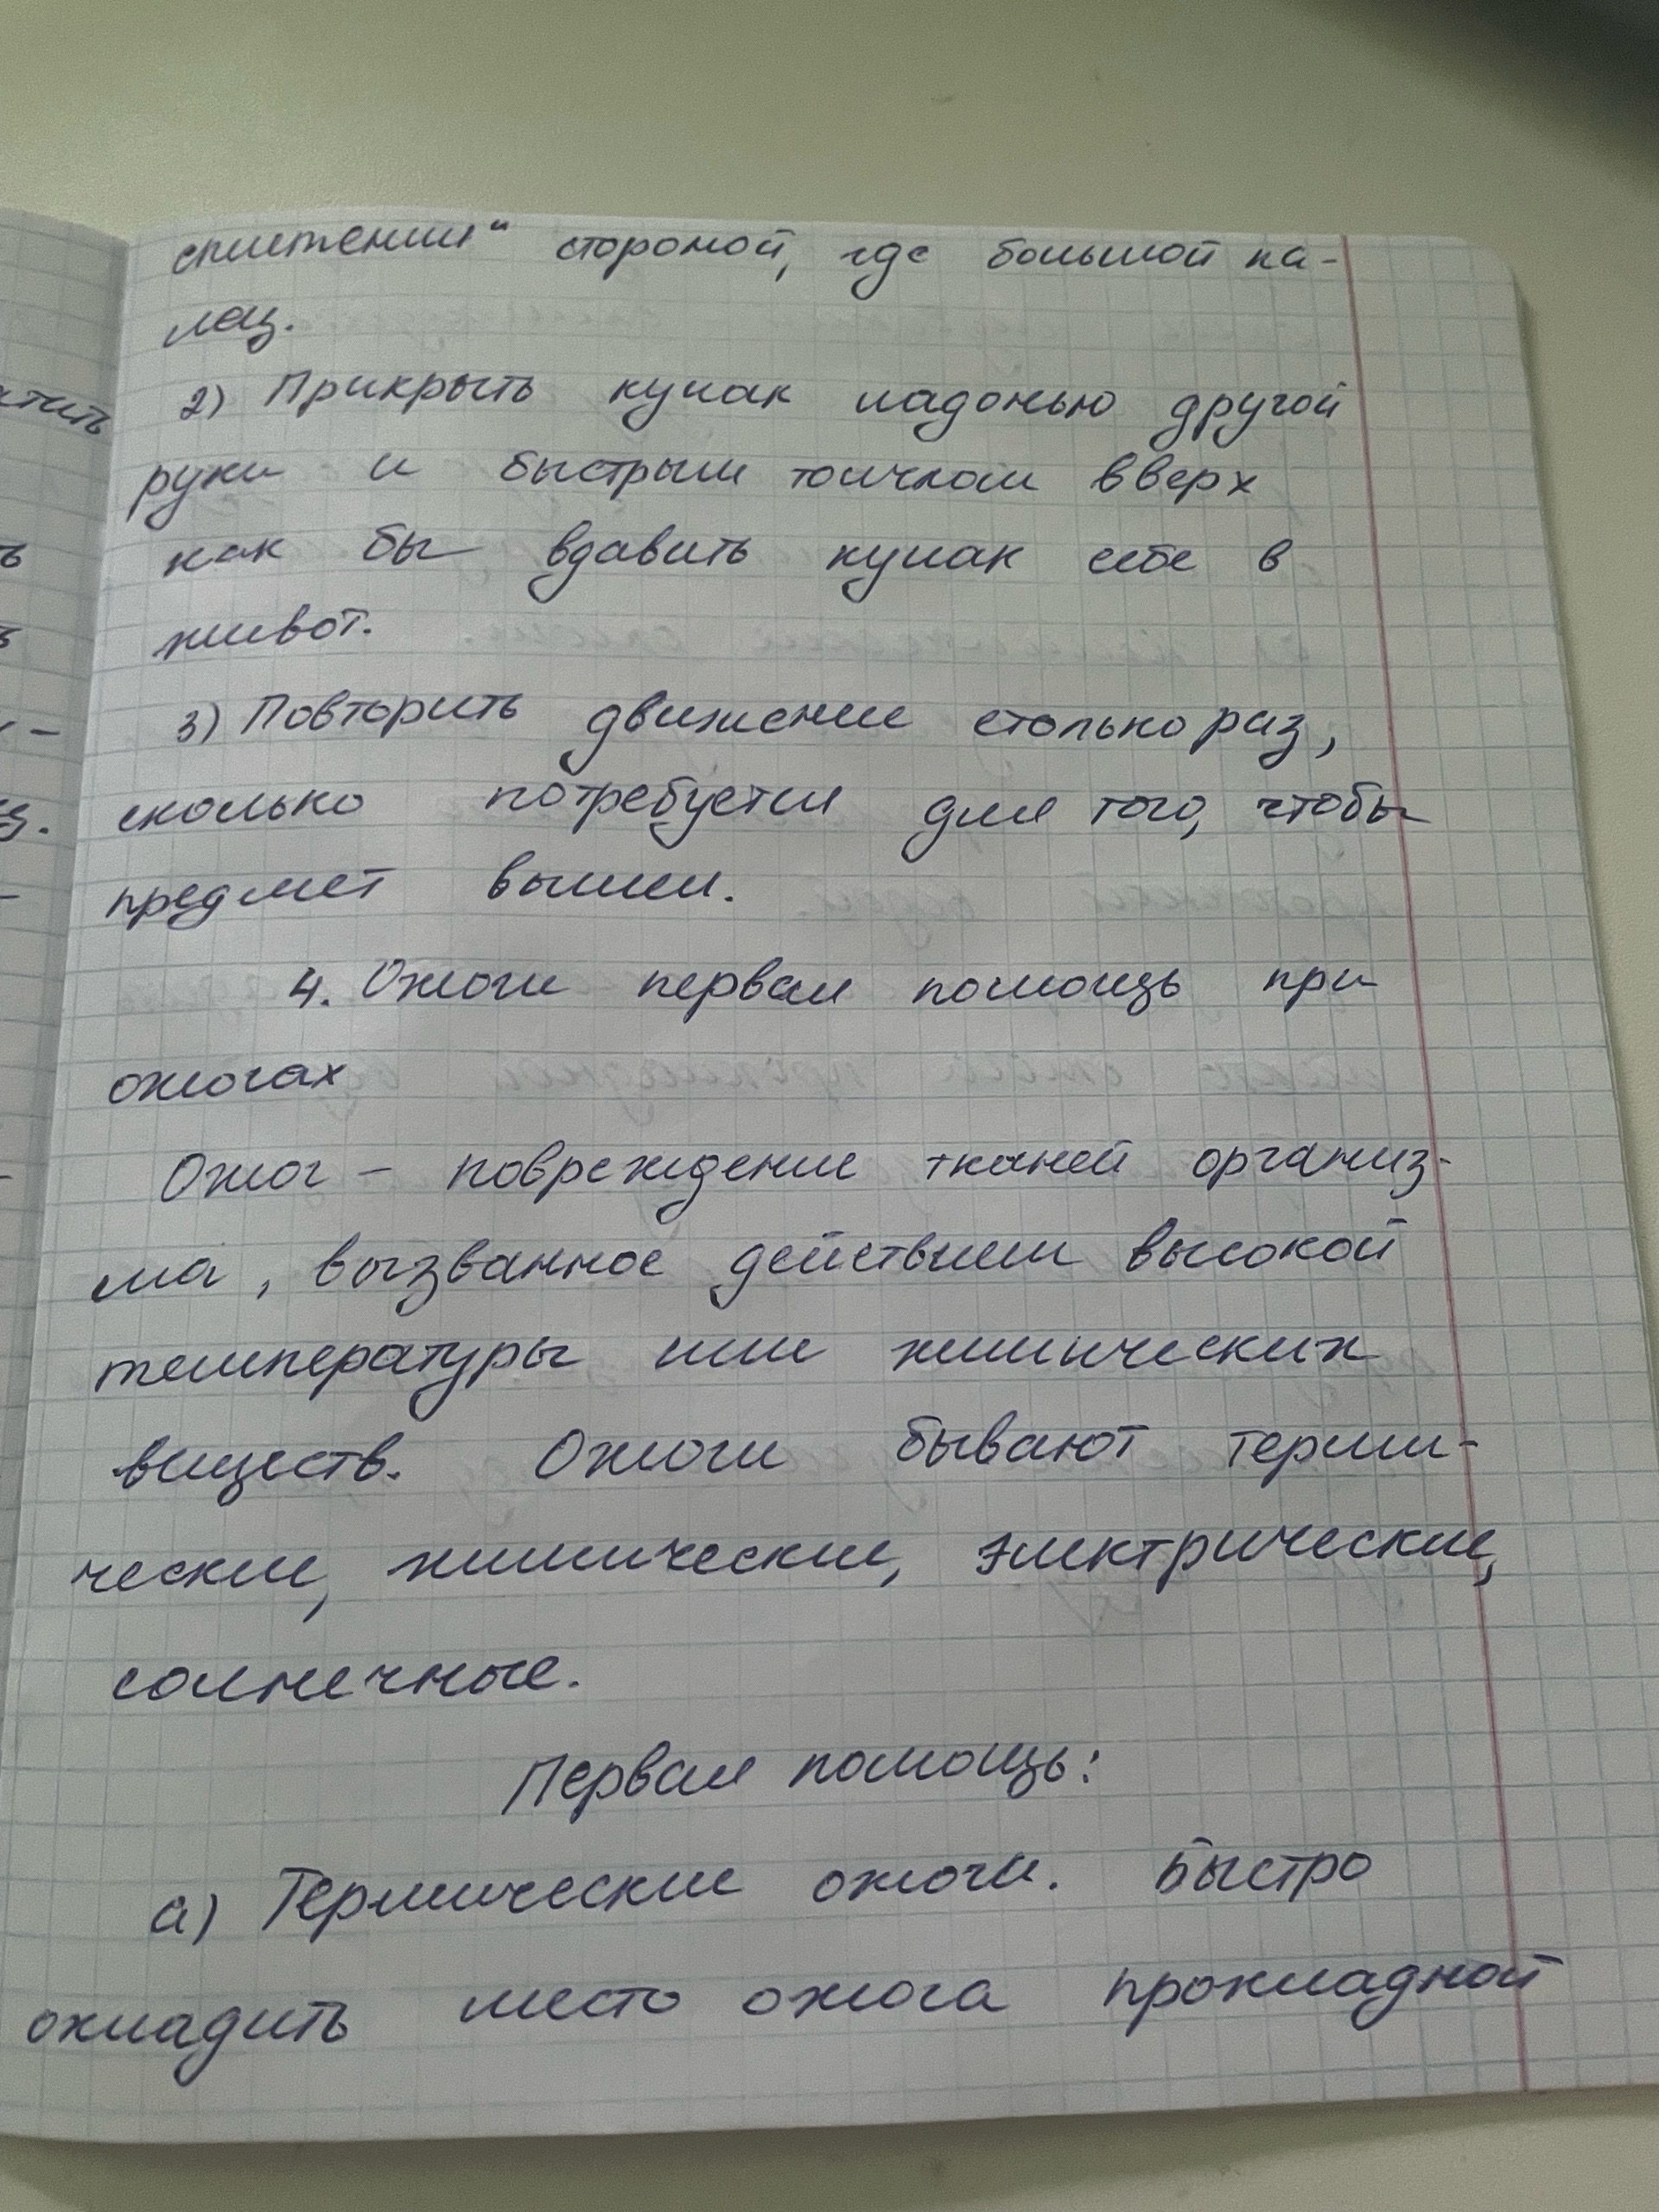 сплетении" стороной, где большой па-
лец.
2) Прикрыть кулак ладонью другой
руки и быстрым толчком вверх
как бы вдавить кулак себе в
живот.
3) Повторить движение столько раз,
сколько потребуется для того, чтобы
предмет вышел.
4. Ожоги первая помощь при
ожогах
Ожог - повреждение тканей организ-
ма, вызванное действием высокой
температуры или химических
веществ. Ожоги бывают терми-
ческие, химические, электрические,
солнечные.
Первая помощь:
а) Термические ожоги. Быстро
охладить место ожога прохладной